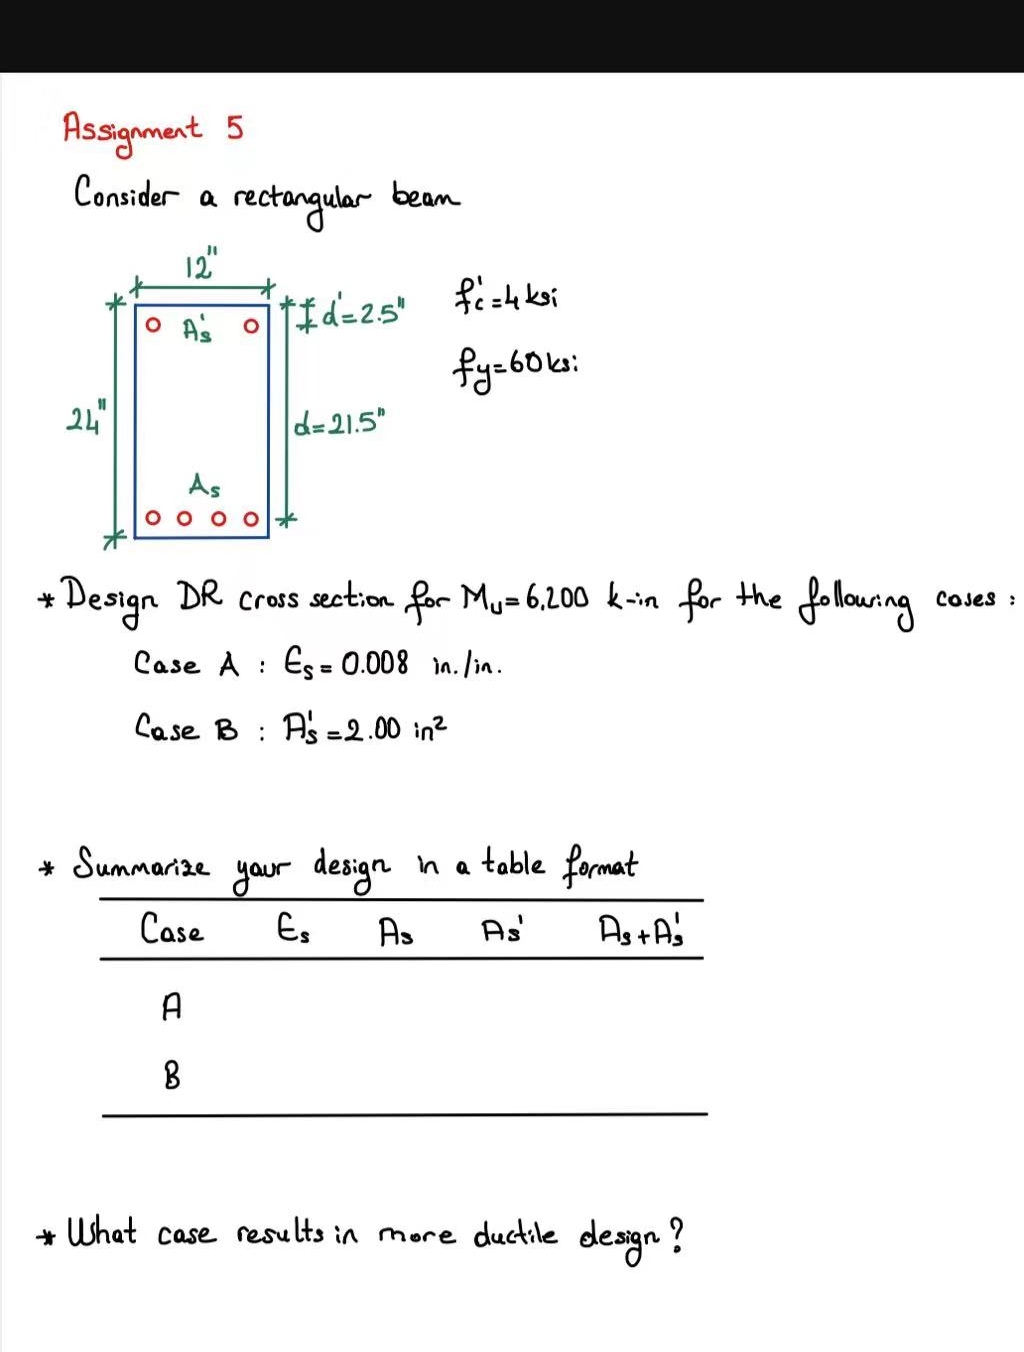 Assignment 5
Consider a rectangular beam
12"
A's
d'=2.5"
f'c=4 ksi
fy=60 ksi
24"
d=21.5"
As
* Design DR cross section for Mu=6,200 k-in for the following cases :
Case A : Es= 0.008 in./in.
Case B : A's =2.00 in²
* Summarize your design in a table format
Case Es As As' As+A's
A
B
* What case results in more ductile design?